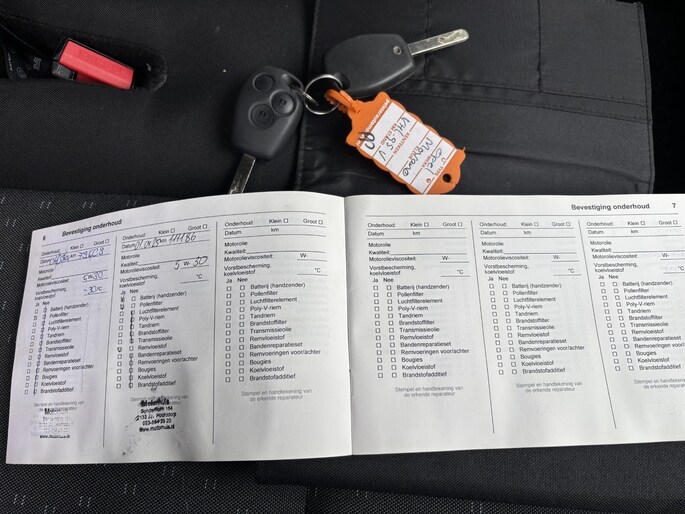 Opel
Movano
6
Bevestiging onderhoud
Onderhoud: Klein ☐ Groot ☐
Datum km
Motorolie
Kwaliteit:
Motorolieviscositeit: 5 W- 30
Vorstbescherming,
koelvloeistof -30 °C
Ja Nee
☐ ☐ Batterij (handzender)
☐ ☐ Pollenfilter
☐ ☐ Luchtfilterelement
☐ ☐ Poly-V-riem
☐ ☐ Tandriem
☐ ☐ Brandstoffilter
☐ ☐ Transmissieolie
☐ ☐ Remvloeistof
☐ ☐ Bandenreparatieset
☐ ☐ Remvoeringen voor/achter
☐ ☐ Bougies
☐ ☐ Koelvloeistof
☐ ☐ Brandstofadditief
Stempel en handtekening van
de erkende reparateur
Onderhoud: Klein ☐ Groot ☐
Datum km 111186
Motorolie
Kwaliteit:
Motorolieviscositeit: 5 W- 30
Vorstbescherming,
koelvloeistof °C
Ja Nee
☐ ☐ Batterij (handzender)
☐ ☐ Pollenfilter
☐ ☐ Luchtfilterelement
☐ ☐ Poly-V-riem
☐ ☐ Tandriem
☐ ☐ Brandstoffilter
☐ ☐ Transmissieolie
☐ ☐ Remvloeistof
☐ ☐ Bandenreparatieset
☐ ☐ Remvoeringen voor/achter
☐ ☐ Bougies
☐ ☐ Koelvloeistof
☐ ☐ Brandstofadditief
Onderhoud: Klein ☐ Groot ☐
Datum km
Motorolie
Kwaliteit:
Motorolieviscositeit: W-
Vorstbescherming,
koelvloeistof °C
Ja Nee
☐ ☐ Batterij (handzender)
☐ ☐ Pollenfilter
☐ ☐ Luchtfilterelement
☐ ☐ Poly-V-riem
☐ ☐ Tandriem
☐ ☐ Brandstoffilter
☐ ☐ Transmissieolie
☐ ☐ Remvloeistof
☐ ☐ Bandenreparatieset
☐ ☐ Remvoeringen voor/achter
☐ ☐ Bougies
☐ ☐ Koelvloeistof
☐ ☐ Brandstofadditief
Stempel en handtekening van
de erkende reparateur
Bevestiging onderhoud 7
Onderhoud: Klein ☐ Groot ☐
Datum km
Motorolie
Kwaliteit:
Motorolieviscositeit: W-
Vorstbescherming,
koelvloeistof °C
Ja Nee
☐ ☐ Batterij (handzender)
☐ ☐ Pollenfilter
☐ ☐ Luchtfilterelement
☐ ☐ Poly-V-riem
☐ ☐ Tandriem
☐ ☐ Brandstoffilter
☐ ☐ Transmissieolie
☐ ☐ Remvloeistof
☐ ☐ Bandenreparatieset
☐ ☐ Remvoeringen voor/achter
☐ ☐ Bougies
☐ ☐ Koelvloeistof
☐ ☐ Brandstofadditief
Stempel en handtekening van
de erkende reparateur
Onderhoud: Klein ☐ Groot ☐
Datum km
Motorolie
Kwaliteit:
Motorolieviscositeit: W-
Vorstbescherming,
koelvloeistof °C
Ja Nee
☐ ☐ Batterij (handzender)
☐ ☐ Pollenfilter
☐ ☐ Luchtfilterelement
☐ ☐ Poly-V-riem
☐ ☐ Tandriem
☐ ☐ Brandstoffilter
☐ ☐ Transmissieolie
☐ ☐ Remvloeistof
☐ ☐ Bandenreparatieset
☐ ☐ Remvoeringen voor/achter
☐ ☐ Bougies
☐ ☐ Koelvloeistof
☐ ☐ Brandstofadditief
Stempel en handtekening van
de erkende reparateur
Onderhoud: Klein ☐
Datum km
Motorolie
Kwaliteit:
Motorolieviscositeit:
Vorstbescherming,
koelvloeistof
Ja Nee
☐ ☐ Batterij (handzender)
☐ ☐ Pollenfilter
☐ ☐ Luchtfilterelement
☐ ☐ Poly-V-riem
☐ ☐ Tandriem
☐ ☐ Brandstoffilter
☐ ☐ Transmissieolie
☐ ☐ Remvloeistof
☐ ☐ Bandenreparatieset
☐ ☐ Remvoeringen voor/achter
☐ ☐ Bougies
☐ ☐ Koelvloeistof
☐ ☐ Brandstofadditief
Stempel en handtekening van
de erkende reparateur